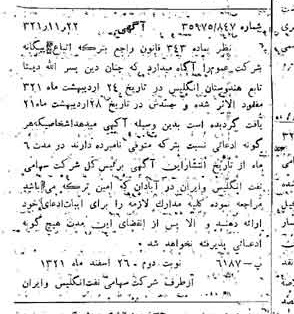 شماره ۳۵۹۷۵/۸۴۷ آگهی ۲۲ر۱۱ر۳۲۱
نظر بماده ۳۴۳ قانون راجع بترکه اتباع بیگانه
بشرکت عموم را آگاه میدارد که چنان دین پسر الله دیتا
تابع هندوستان انگلیس در تاریخ ۲۴ اردیبهشت ماه ۳۲۱
مفقود الاثر شده و جسدش در تاریخ ۲۸ اردیبهشت ماه ۲۱
یافت گردیده است بدین وسیله آگهی میدهد اشخاصیکه هر
گونه ادعائی نسبت بترکه متوفی نامبرده دارند در مدت ۶
ماه از تاریخ انتشار این آگهی برئیس کل شرکت سهامی
نفت انگلیس و ایران در آبادان که امین ترکه می باشد
مراجعه نموده کلیه مدارک لازمه را برای اثبات ادعای خود
ارائه دهند و الا پس از انقضای این مدت هیچ گونه
ادعائی پذیرفته نخواهد شد
پ—۶۱۸۷ نوبت دوم ۲۶ اسفند ماه ۱۳۲۱
از طرف شرکت سهامی نفت انگلیس و ایران